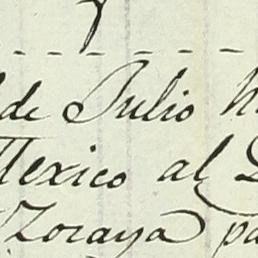 de Julio
Mexico al
Zoraya pa